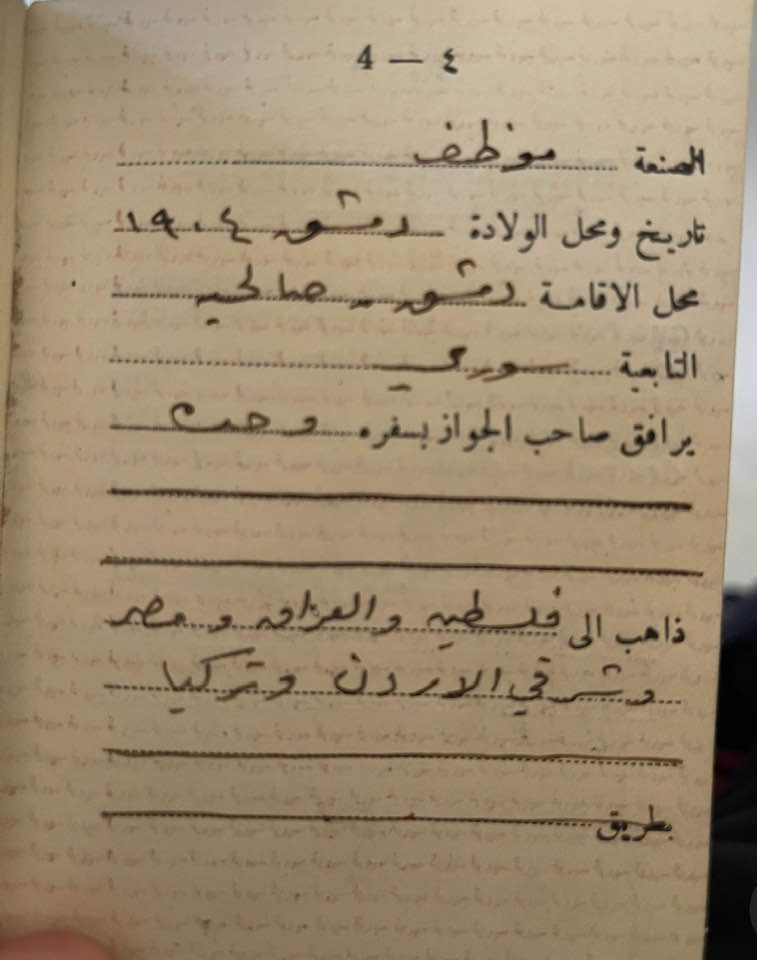 4 — ٤
الصنعة موظف
تاريخ ومحل الولادة دمشق ١٩٠٤
محل الاقامة دمشق - صالحيه
التابعية سوري
يرافق صاحب الجواز بسفره وحده
ذاهب الى فلسطين والعراق ومصر
وشرقي الاردن وتركيا
بطريق